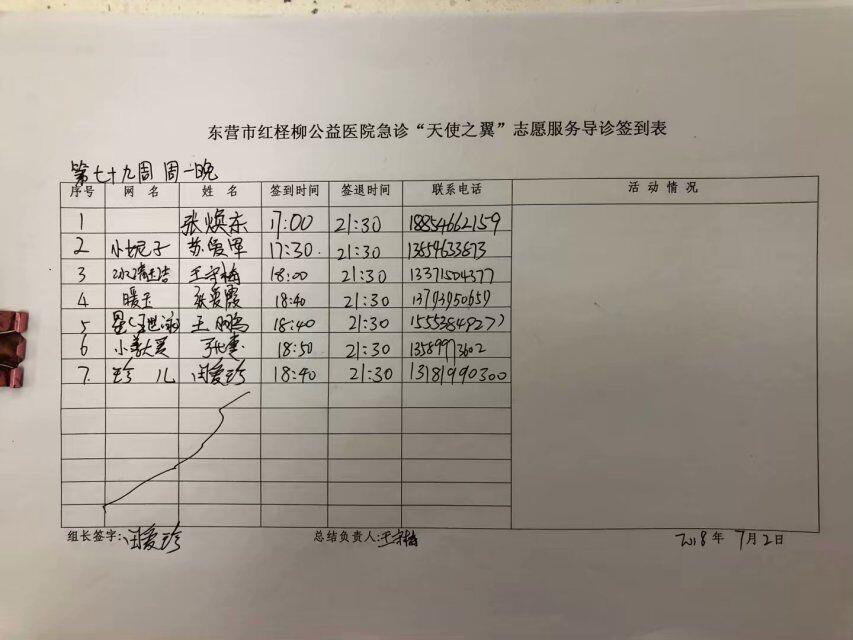 东营市红柽柳公益医院急诊“天使之翼”志愿服务导诊签到表
第七十九周 周一晚
序号 网 名 姓 名 签到时间 签退时间 联系电话 活 动 情 况
1 张焕东 17:00 21:30 18854662159
2 小妮子 苏爱军 17:30 21:30 13659633673
3 冰清玉洁 王守梅 18:00 21:30 13371504377
4 暖玉 张爱霞 18:40 21:30 13793950659
5 王鹏 18:40 21:30 15553849277
6 18:50 21:30 13589973602
7. 珍儿 闫爱珍 18:40 21:30 13181990300
组长签字: 闫爱珍 总结负责人: 王守梅 2018 年 7 月 2 日